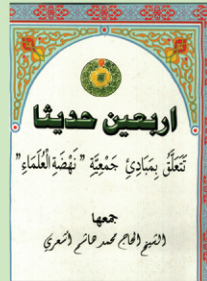 اربعين حديثا
تتعلق بِمَبادِئِ جَمْعِيَّةِ "نَهْضَةِ الْعُلَمَاءِ"
جمعها
الشيخ الحاج محمد هاشم أشعري